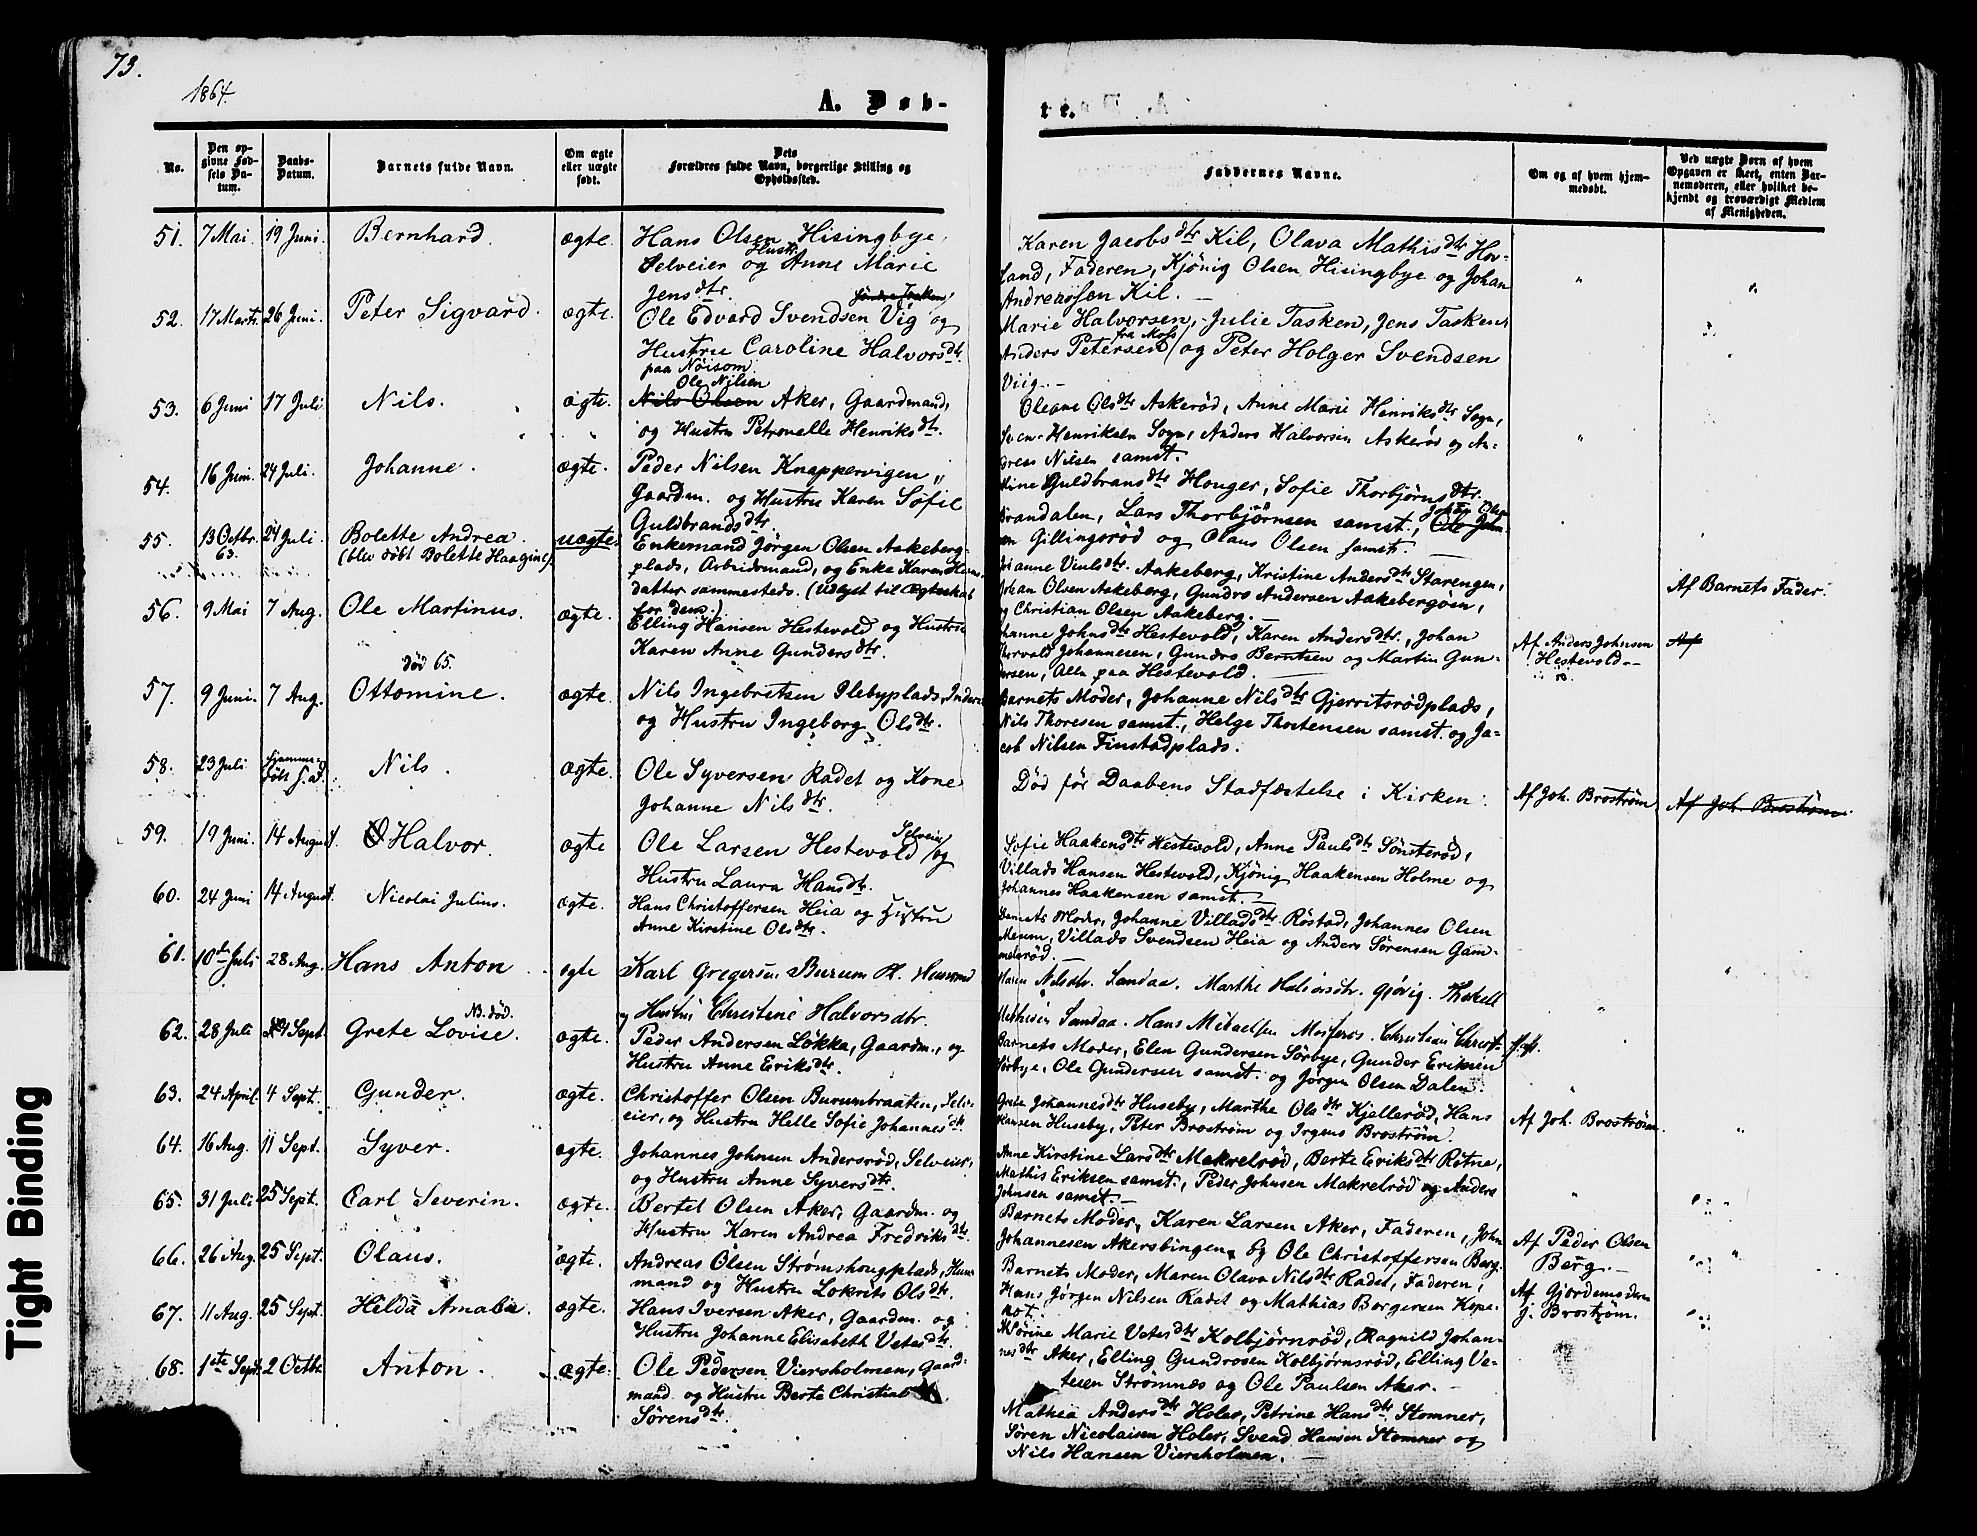 73.
1864.
A. Døb-
te.
No.
Den op-
givne Fød-
sels Da-
tum.
Daabs-
Datum.
Barnets fulde Navn.
Om ægte
eller uægte
født.
Dets
Forældres fulde Navn, borgerlige Stilling og
Opholdssted.
Faddernes Navne.
Om og af hvem hjem-
medøbt.
Ved uægte Børn af hvem
Opgaven er skeet, enten Bar-
nemoderen, eller hvilket be-
kjendt og troværdigt Medlem
af Menigheden.
51. 7 Mai. 19 Juni. Bernhard. ægte. Hans Olsen Hisingbye,
Hustr.
Selveier og Anne Marie
Jensdtr.
Karen Jacobsdtr Kil, Olava Mathisdtr Hov-
land, Faderen, Kjønig Olsen Hisingbye og Johan
Andreassen Kil. —
52. 17 Marts. 26 Juni. Peter Sigvard. ægte. Ole Edvard Svendsen Vig og
Hustru Caroline Halvorsdtr.
paa Nöisom.
Marie Halvorsen, Julie Tasken, Jens Tasken,
fra Moss
Anders Petersen og Peter Holger Svendsen
Viig. —
53. 6 Juni 17 Juli Nils. ægte.
Ole Nilsen
Nils Olsen Aker, Gaardmand,
og Hustru Petronelle Henriksdtr.
Oleane Olsdtr Askerød, Anne Marie Henriksdtr Sogn,
Sven Henriksen Sogn, Anders Halvorsen Askerød og An-
dreas Nilsen samst.
54. 16 Juni. 24 Juli. Johanne. ægte. Peder Nilsen Knappervigen,
Gaardm. og Hustru Karen Sofie
Guldbrandsdtr.
Guldbransdtr Houger, Sofie Thorbjørnsdtr.
Brandalen, Lars Thorbjörnsen samst.,
Gillingsrød og Claus Olsen samst. —
55. 13 Octbr. 63. 24 Juli. Bolette Andrea.
(blev döbt Bolette Haagine).
uægte. Enkemand Jørgen Olsen Aakeberg-
plads, Arbeidsmand, og Enke Karen
datter sammesteds. (Udlyst til Ægteskab
for dem.)
Aakeberg, Kristine Andersdtr Starengen,
Johan Olsen Aakeberg, Gundro Andersen Aakebergøen,
og Christian Olsen Aakeberg. —
Af Barnets Fader.
56. 9 Mai 7 Aug. Ole Martinus. ægte. Elling Hansen Hestevold og Hustru
Karen Anne Gundersdtr.
Johnsdtr Hestevold, Karen Andersdtr., Johan
Thorvald Johannesen, Gundro Berntsen og Martin Gun-
dersen, Alle paa Hestevold. —
Af Anders Johnsen
Hestevold. —
Af
död 65.
57. 9 Juni. 7 Aug. Ottomine. ægte. Nils Ingebretsen Ilebyplads,
og Hustru Ingeborg Olsdtr.
Barnets Moder, Johanne Nilsdtr Gjerritsrødplads,
Nils Thoresen samst., Helge Thostensen samst. og Ja-
cob Nilsen Finstadplads.
58. 23 Juli Hjemme-
döbt Nils. ægte. Ole Syversen Radet og Kone
Johanne Nilsdtr.
Død før Daabens Stadfæstelse i Kirken.
Af Joh. Broström
Af Joh. Broström
59. 19 Juni. 14 August. Halvor. ægte Ole Larsen Hestevold Selveier og
Hustru Laura Hansdtr.
Sofie Haakensdtr Hestevold, Anne Paulsdtr Sønsterød,
Villads Hansen Hestevold, Kjönig Haakensen Holme og
Johannes Haakensen samst. —
60. 24 Juni 14 August. Nicolai Julius. ægte. Hans Christoffersen Heia og Hustru
Anne Kirstine Olsdtr.
Barnets Moder, Johanne Villadsdtr. Röstad, Johannes Olsen
Villads Svendsen Heia og Anders Sørensen Gam-
melsrød. —
61. 10de Juli 28 Aug. Hans Anton ægte Karl Gregersen Burum
og Hustru Christine Halvorsdtr.
Karen Nilsdtr. Sandaa. Marthe Halvorsdtr. Gjövig.
Sandaa. Hans
NB. död.
62. 28 Juli 4 Sept. Grete Lovise. ægte. Peder Andersen Løkka, Gaardm., og
Hustru Anne Eriksdtr.
Barnets Moder, Elen Gundersen Sörbye, Gunder Eriksen
Sörbye, Ole Gundersen samst. og Jørgen Olsen Dalen.
63. 24 April. 4 Sept. Gunder. ægte. Christoffer Olsen Burumbraaten, Selv-
eier, og Hustru Helle Sofie Johannesdtr.
Grete Johannesdtr Huseby, Marthe Olsdtr Kjellerød, Hans
Hansen Huseby, Peter Broström og Irgens Broström.
Af Joh. Broström.
64. 16 Aug. 11 Sept. Syver. ægte. Johannes Johnsen Andersrød, Selveier,
og Hustru Anne Syversdtr.
Anne Kirstine Larsdtr Makrelrød, Berte Eriksdtr Rötne,
Mathis Eriksen samst., Peder Johnsen Makrelrød og Anders
Johnsen samst. —
65. 31 Juli 25 Sept. Carl Severin. ægte. Bertel Olsen Aker, Gaardm. og
Hustru Karen Andrea Fredriksdtr.
Barnets Moder, Karen Larsen Aker, Faderen, John
Johannesen Akersbingen, og Ole Christoffersen Berg.
Af Peder Olsen
Berg. —
66. 26 Aug. 25 Sept. Olaus. ægte. Andreas Olsen Strømshougplads, Huus-
mand og Hustru Lokrits Olsdtr.
Barnets Moder, Maren Olava Nilsdtr Radet, Faderen,
Hans Jørgen Nilsen Radet og Mathias Borgersen Kope-
Af Gjordemoderen
J. Broström.
67. 11 Aug. 25 Sept. Hilda Amalia. ægte. Hans Iversen Aker, Gaardm. og
Hustru Johanne Elisabeth Vetesdtr.
Sørine Marie Vetesdtr Kolbjørnrød, Ragnild Johan-
nesdtr Aker, Elling Gundrosen Kolbjørnsrød, Elling Ve-
tesen Strømnæs og Ole Paulsen Aker. —
68. 1ste Sept. 2 Octbr. Anton. ægte. Ole Pedersen Viersholmen, Gaard-
mand og Hustru Berte Christine
Sörensdtr.
Mathea Andersdtr Holer, Petrine Hansdtr. Stomner,
Søren Nicolaisen Holer, Svend Hansen Stomner og
Nils Hansen Viersholmen. —
Tight Binding